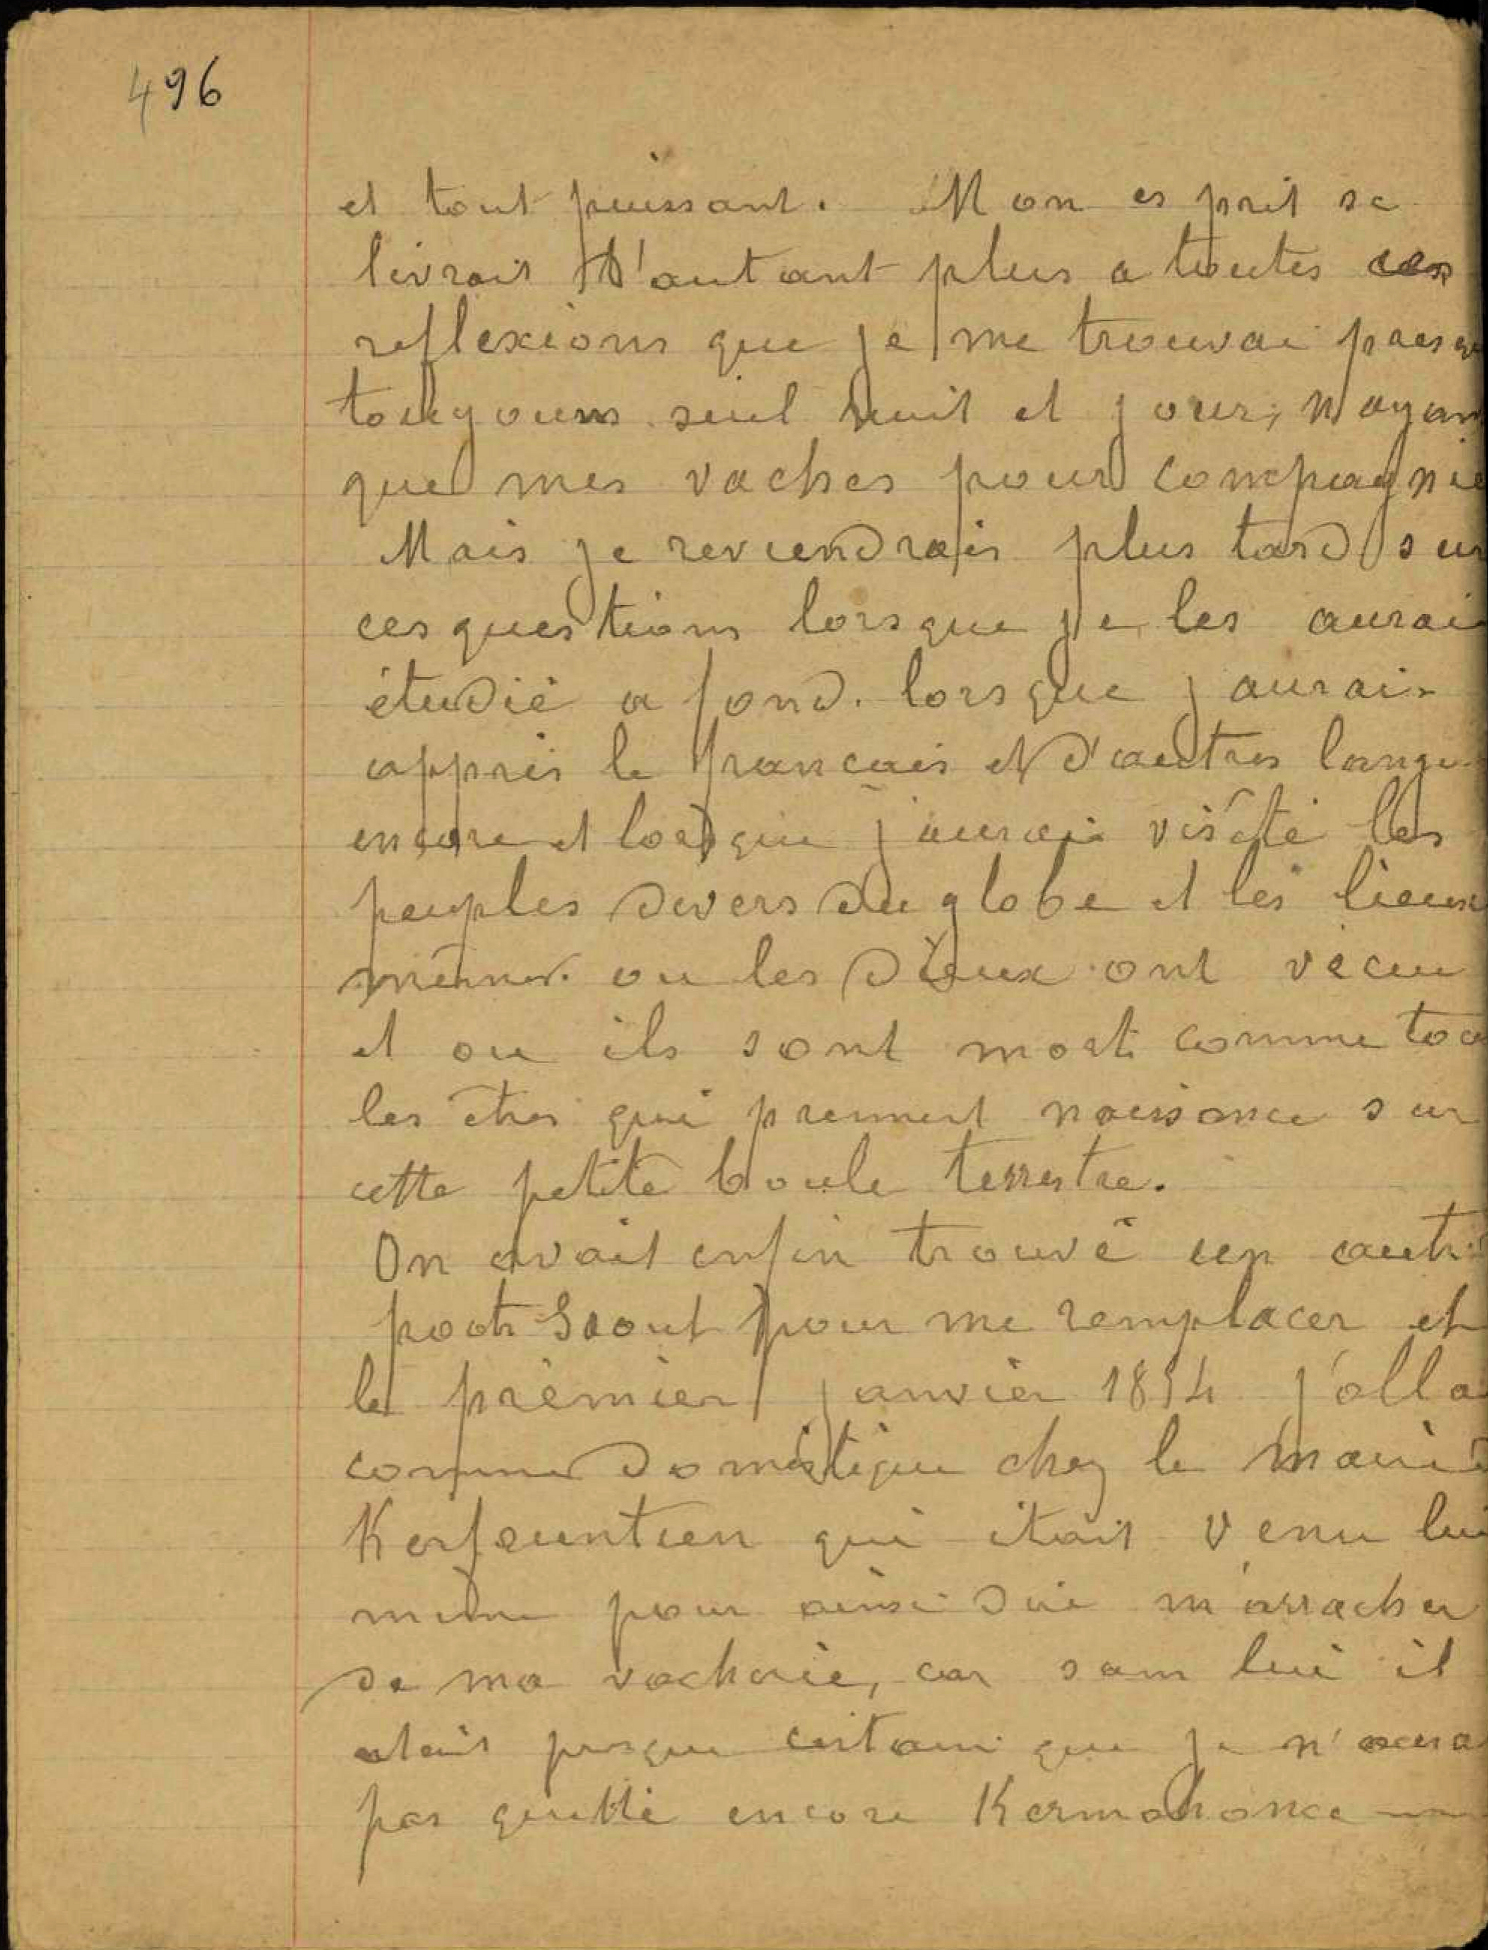 496
et tout puissant. Mon esprit se
livrait d'autant plus a toutes ces
reflexions que je me trouvai presqu
toujours seul nuit et jour, n ayan
que mes vaches pour compagnie
Mais je reviendrais plus tard sur
ces questions lorsque je les aurai
étudié a fond. lorsque j aurai
appris le francais et d'autres langu
encore et lorsque j'aurai visité les
peuples divers du globe et les lieux
mêmes ou les dieux ont vécu
et ou ils sont mort comme tou
les êtres qui prennent naissance sur
cette petite boule terrestre.
On avait enfin trouvé un autre
potr Saout pour me remplacer et
le premier janvier 1854 j'alla
comme domestique chez le maire
Kerfeunteun qui était venu lui
même pour ainsi dire m'arracher
de ma vacherie, car sans lui il
etait presque certain que je n'aura
pas quitté encore Kermahonec